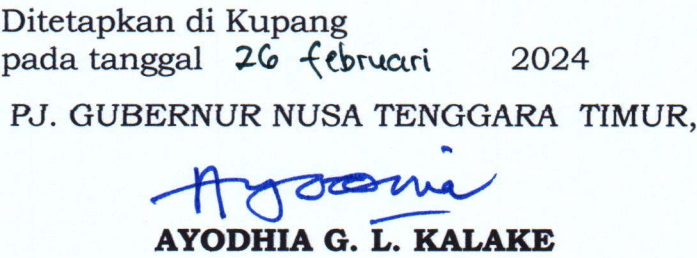 Ditetapkan di Kupang
pada tanggal 26 februari 2024
PJ. GUBERNUR NUSA TENGGARA TIMUR,
AYODHIA G. L. KALAKE